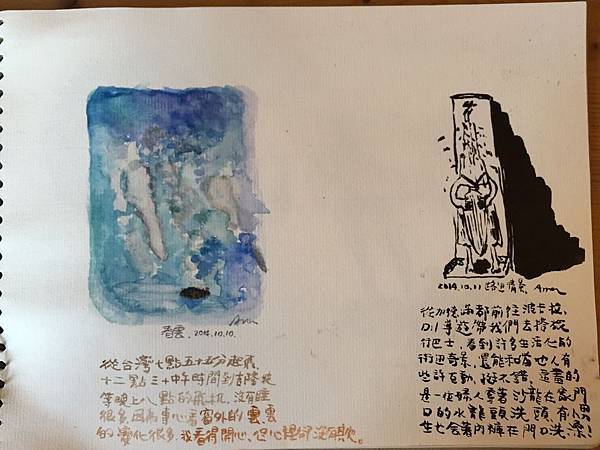 看雲. 2014.10.10. Aron
從台灣七點五十五分起飛
十二點三十中午時間到吉隆坡
等晚上八點的飛机, 沒有睡
很多, 因為專心看窗外的雲, 雲
的變化很多, 我看得開心, 但心裡卻沒有
2014.10.11 路边情景 Aron
從加德滿都前往波卡拉,
DIL 車廂帶我們去搭
付巴士, 看到許多生活化的
街边奇景, 還能和當地人有
些許互動, 挺不錯, 逗趣的
是一位婦人穿著沙龍在家門
口的水龍頭洗頭, 有小男
生也会著內褲在門口洗澡!